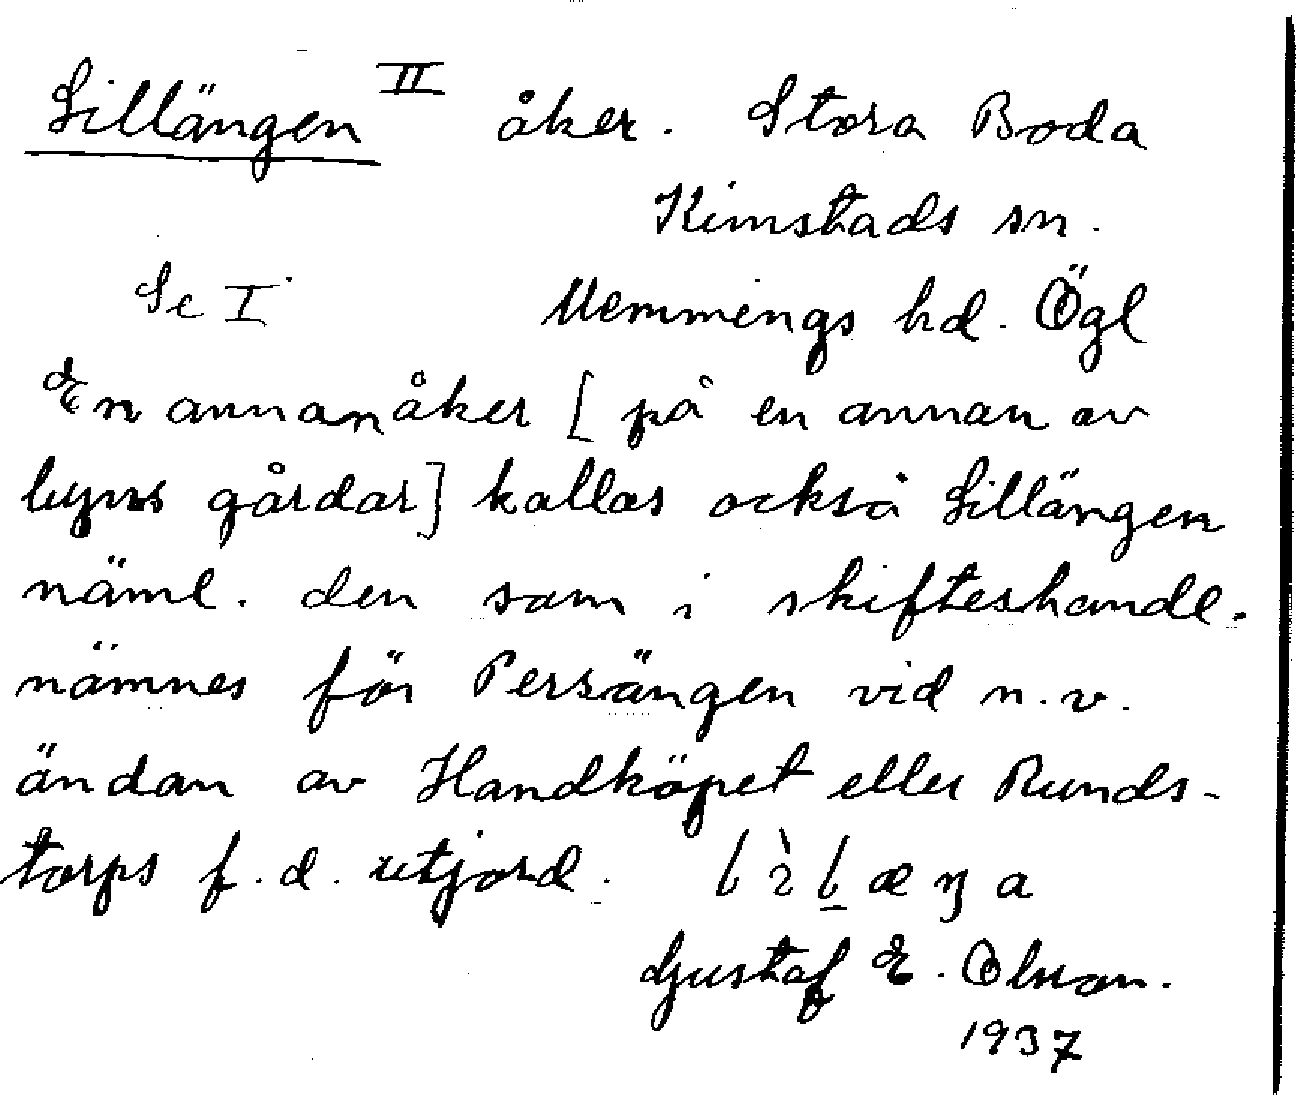 Lillängen II åker. Stora Boda
Kimstads sn.
Se I Memmings hd. Ögl
En annan åker [på en annan av
byns gårdar] kallas också Lillängen
näml. den som i skifteshandl.
nämnes för Persängen vid n.v.
ändan av Handköpet eller Runds-
torps f.d. utjord.
Gustaf E. Olson.
1937